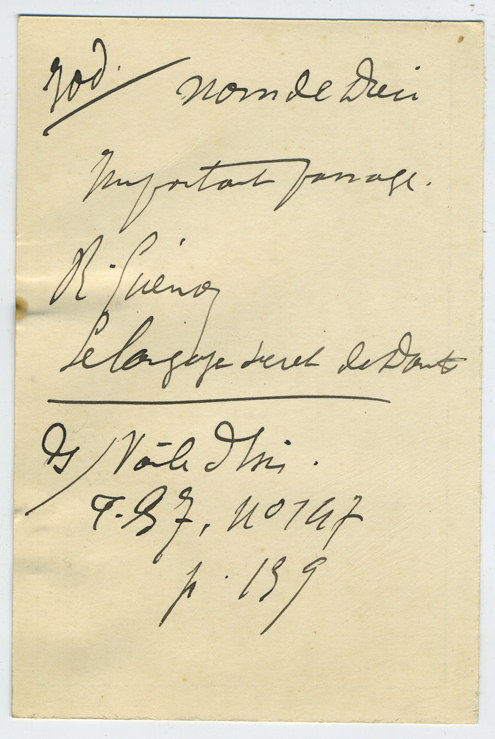 Iod. / nom de Dieu
Important passage.
R. Guénon
Le langage secret de Dante
ds / Voile d'Isis.
p. 139